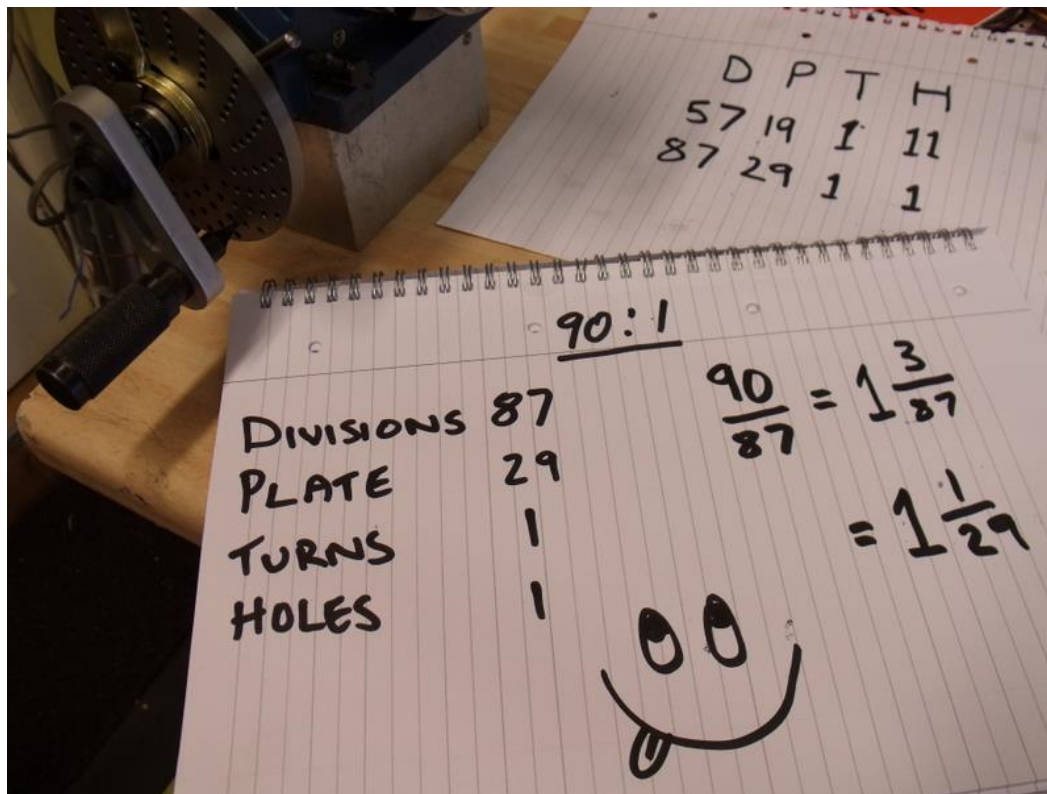 D P T H
57 19 1 11
87 29 1 1
90:1
DIVISIONS 87
PLATE 29
TURNS 1
HOLES 1
90/87 = 1 3/87
= 1 1/29